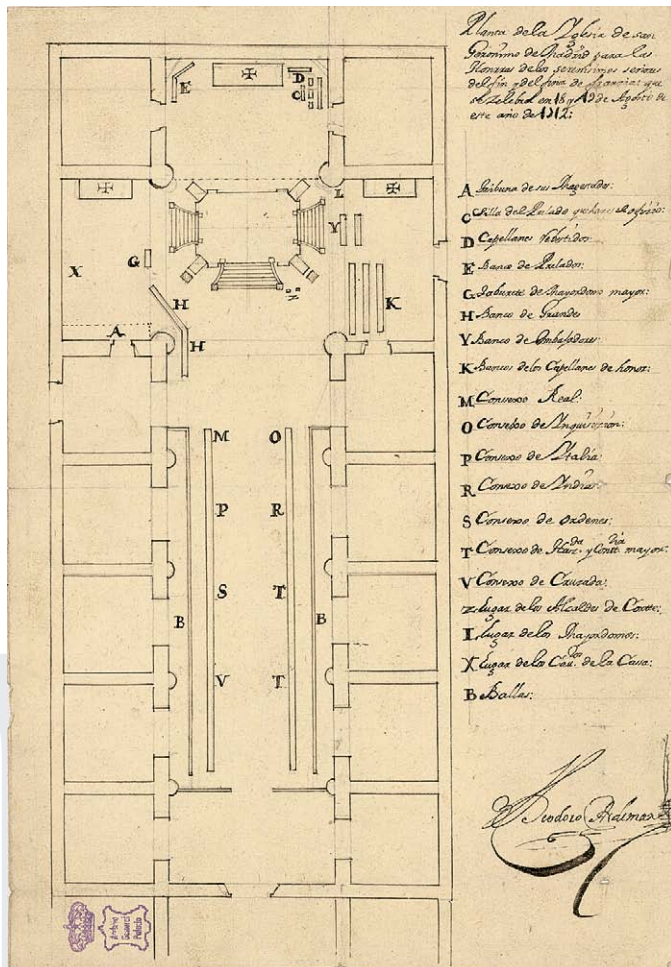 Planta de la Yglesia de san
Geronimo de Madrid para las
Honrras de los serenisimos señores
delfin y delfina de francia: que
se zelebró en 18 y 19 de Agosto de
este año de 1712:
A Tribuna de sus Magestades:
C Silla del Prelado
D Capellanes Vebstidos:
E Banco de Prelados:
G Taburete de Mayordomo mayor:
H Banco de Grandes
Y Banco de Embajadores:
K Bancos de los Capellanes de honor:
M Consexo Real:
O Consexo de Ynquisizion:
P Consexo de Ytalia:
R Consexo de Yndias:
S Consexo de ordenes:
T Consexo de Haz.da y Cont.dia mayor:
V Consexo de Cruzada:
Z Lugar de los Alcaldes de Corte:
L Lugar de los Mayordomos:
X Lugar de los Cav.ros de la Casa:
B Ballas:
Teodoro
E
D
C
L
Y
G
X
H
K
A
H
M
O
P
R
S
T
B
B
V
T
Archivo
General
Palacio